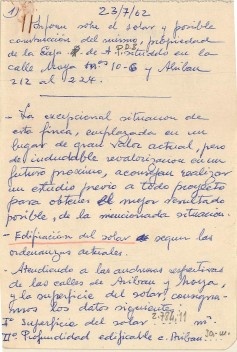 1) 23/7/62
Informe sobre el solar y posible
construcción del mismo, propiedad
de la Caja de A. P.D.B. situado en la
calle Moya nos 10-6 y Aribau
212 al 224.
- La excepcional situación de
esta finca, emplazada en un
lugar de gran valor actual, pero
de indudable revalorización en un
futuro próximo, aconsejan realizar
un estudio previo a todo proyecto
para obtener el mejor resultado
posible, de la mencionada situación.
- Edificación del solar según las
ordenanzas actuales.
- Atendiendo a las anchuras respectivas
de las calles de Aribau y Moya,
y la superficie del solar, consigna-
mos los datos siguientes
Iº Superficie del solar m²
IIº Profundidad edificable c. Aribau